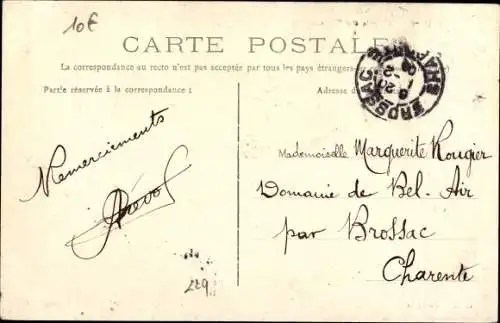 10€
CARTE POSTALE
La correspondance au recto n'est pas acceptée par tous les pays étrangers
Partie réservée à la correspondance :
Adresse d
BROSSAC
CHARENTE
Remerciements
Mademoiselle Marguerite Rougier
Domaine de Bel-Air
par Brossac
Charente
229